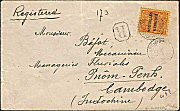 Registered
173
R
Monsieur
Béfot
Mecanicien
Messageries Fluviales
Pnom-Penh
Cambodge
(Indochine)